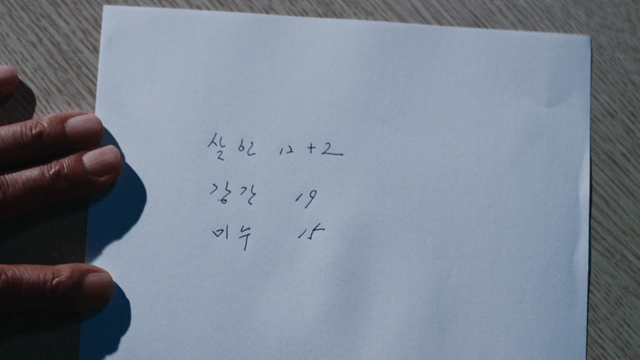 살인 12+2
강간 19
미수 15